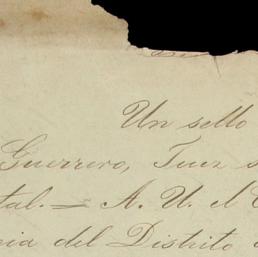 Un sello
Guerrero, Juez
tal. = A. U. el
del Distrito